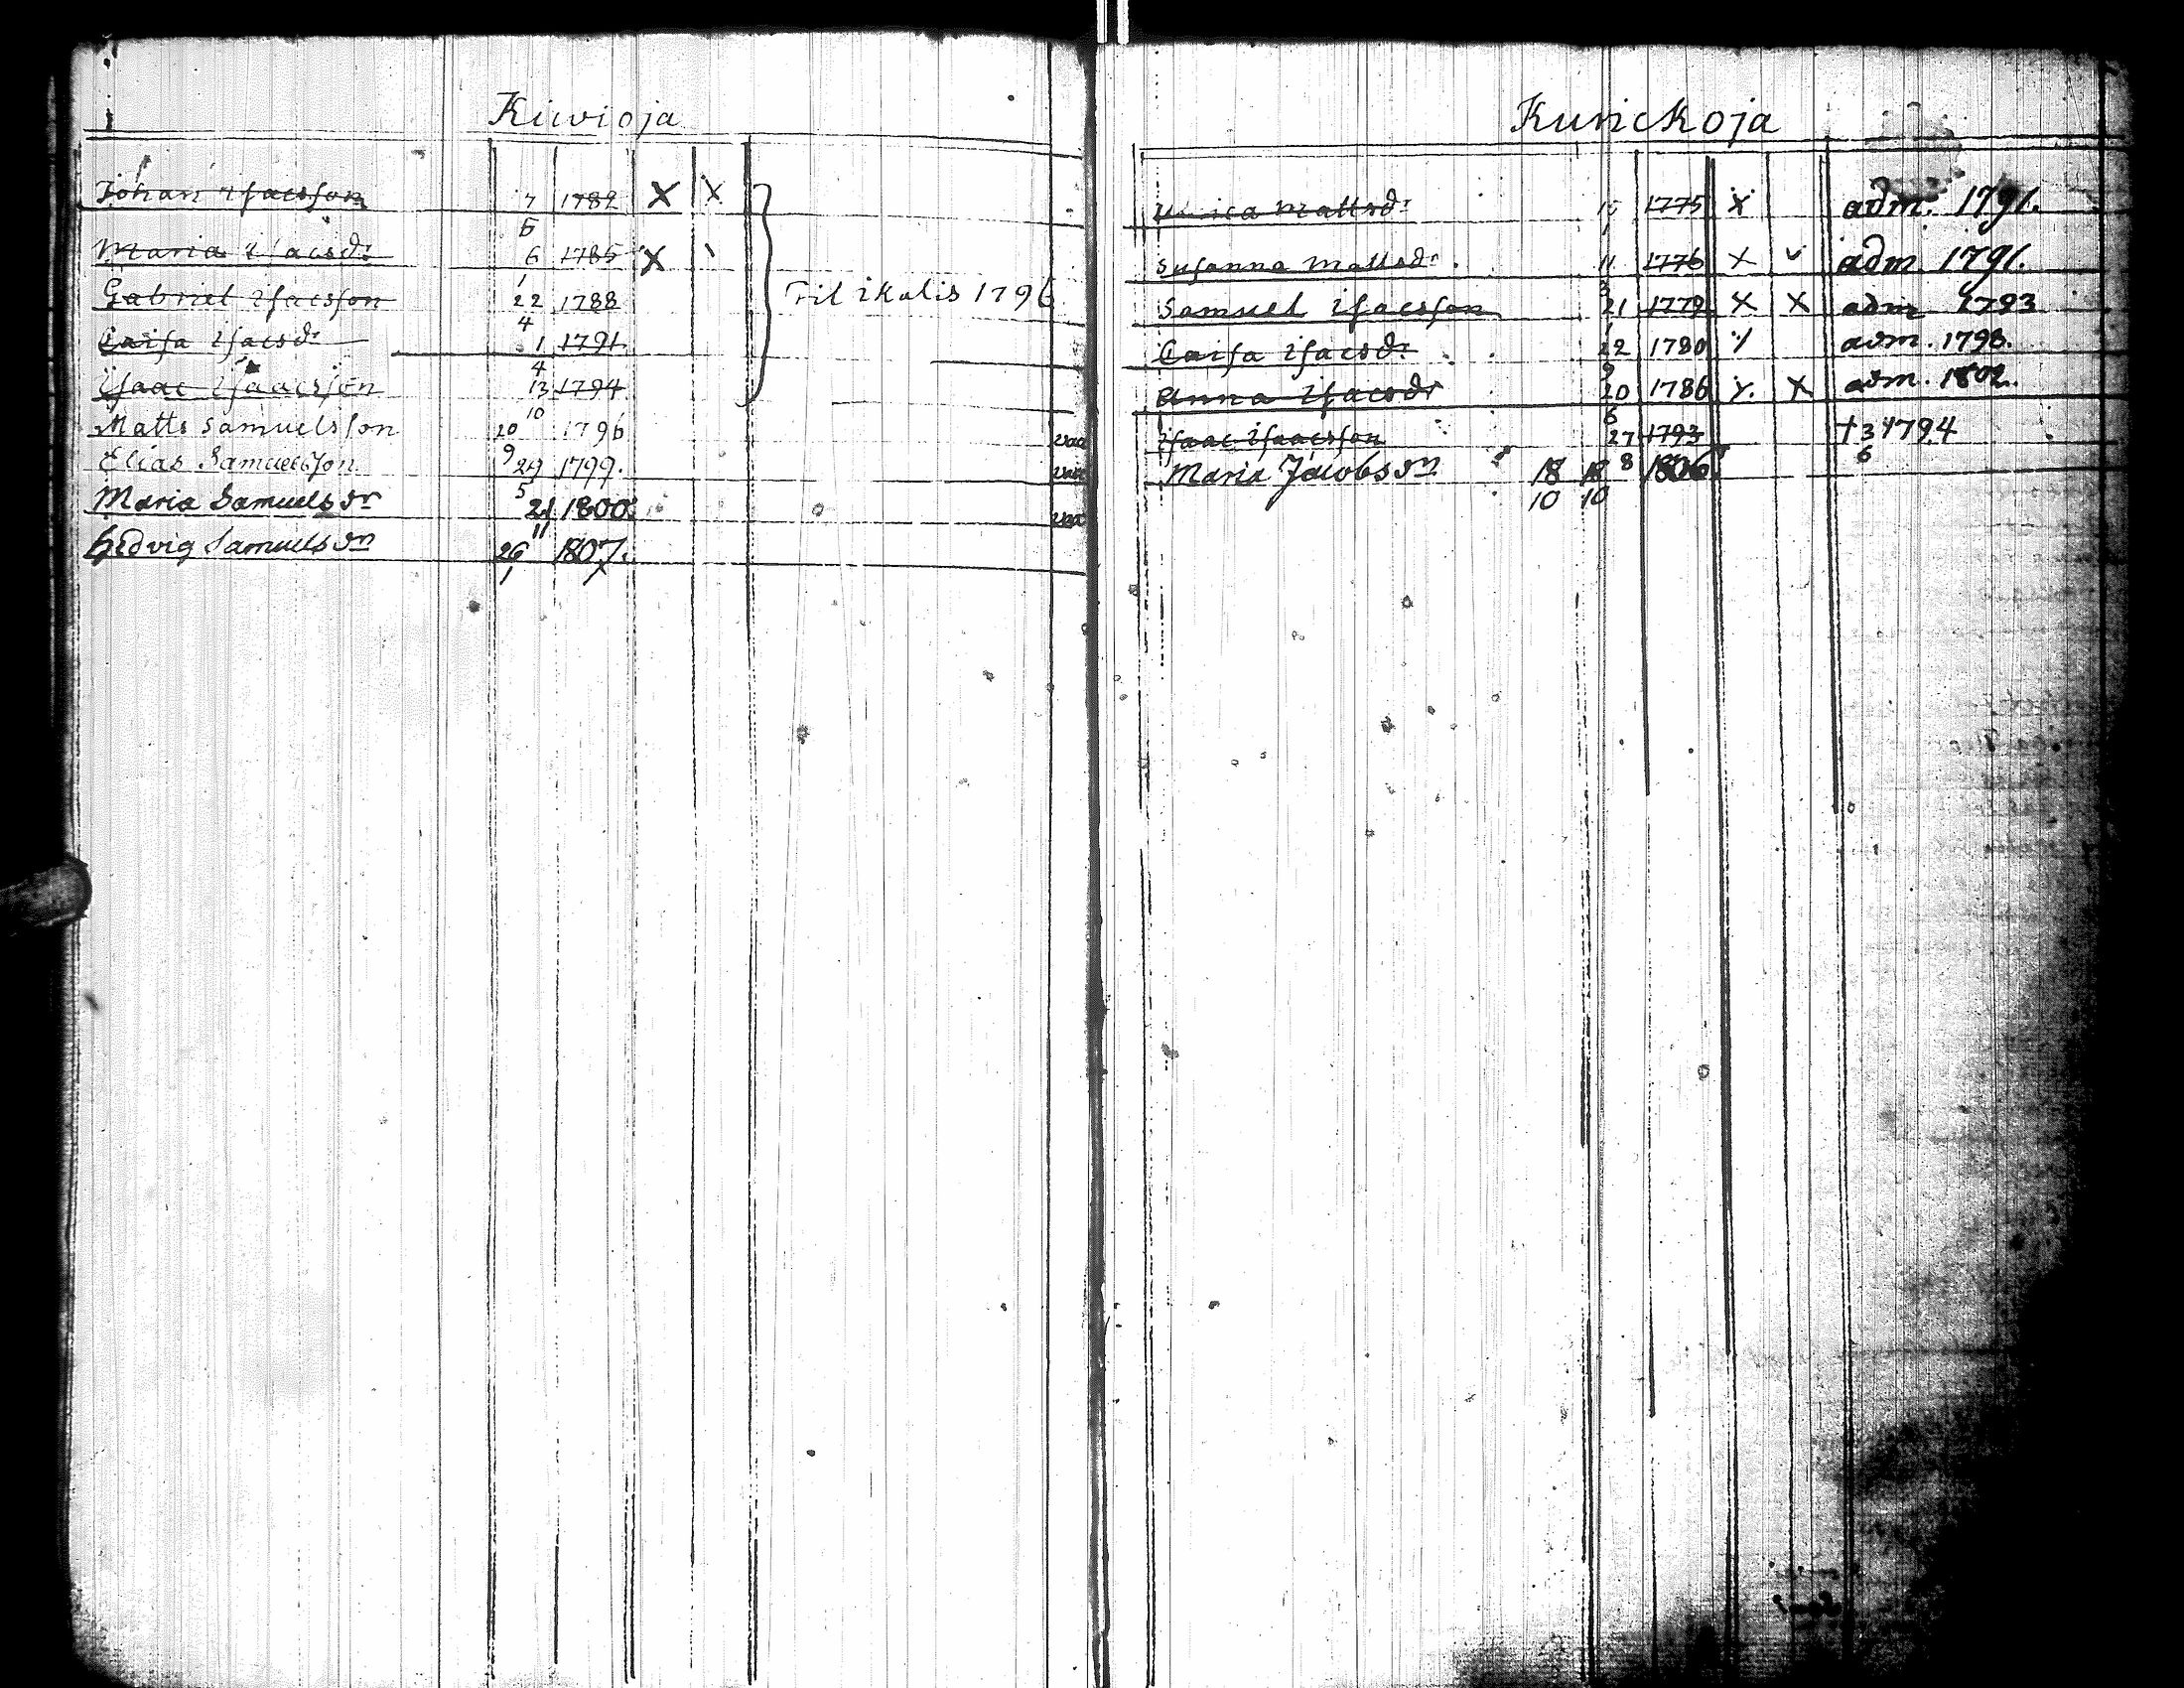 Kiwioja
Johan Isacsson 7 1782 X X
5
Maria Isacsdr 6 1785 X
1
Gabriel Isacsson 22 1788 Til Ikalis 1796
4
Caisa Isacsdr 1 1791
4
Isaac Isaacsson 13 1794
10
Matts Samuelsson 20 1796 vac
9
Elias Samuelsson 29 1799. vac
5
Maria Samuelsdr 21 1800. vac
11
Hedvig Samuelsdn 26 1807.
1
Kunckoja
Mattsdr 15 1775 X adm. 1791.
1
Susanna Mattsdr 11 1776 X adm. 1791.
3
Samuel Isacsson 21 1779 X X adm 1793
1
Caisa Isacsdr 22 1780 adm. 1798.
9
Anna Isacsdr 20 1786 X. X adm. 1802.
6
Isaac Isaacsson 27 1793 † 3 1794
8 6
Maria Jacobsdn 18 18 1806.
10 10